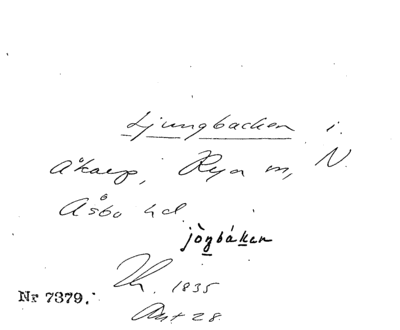 Ljungbacken i.
Åkarp, Rya m, N.
Åsbo hd
jòṉbáḵen
1835
Nr 7379.